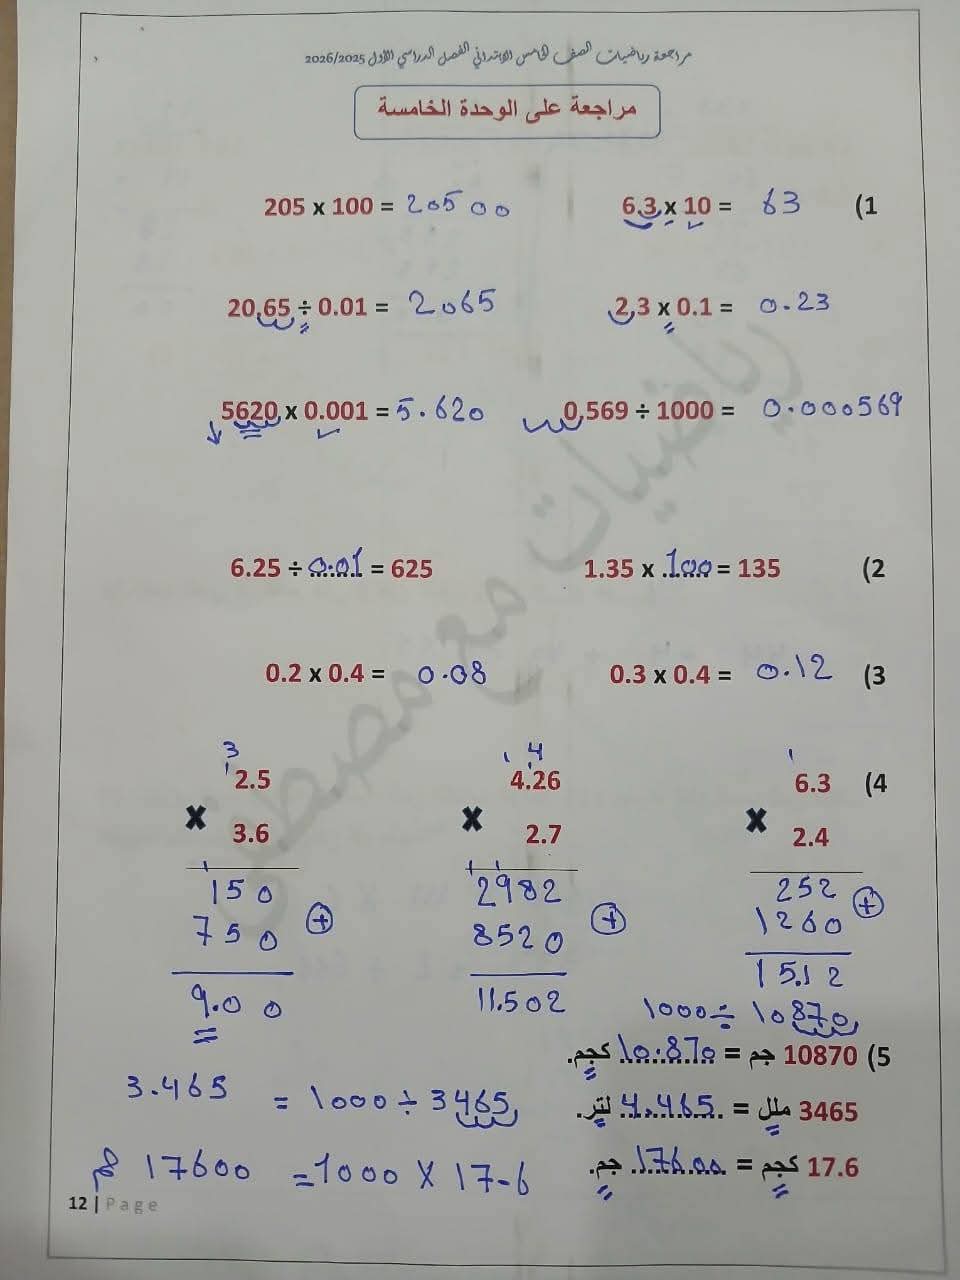 مراجعة رياضيات الصف الخامس الابتدائي الفصل الدراسي الأول 2026/2025
مراجعة على الوحدة الخامسة
(1 6.3 x 10 = 63
205 x 100 = 20500
2,3 x 0.1 = 0.23
20,65 ÷ 0.01 = 2065
0,569 ÷ 1000 = 0.000569
5620 x 0.001 = 5.620
(2 1.35 x 100 = 135
6.25 ÷ 0.01 = 625
(3 0.3 x 0.4 = 0.12
0.2 x 0.4 = 0.08
(4
1
6.3
x
2.4
252 +
1260
15.12
1 4
4.26
x
2.7
2982 +
8520
11.502
3
1
2.5
x
3.6
150 +
750
9.00
1000 ÷ 10870
(5 10870 جم = 10.870 كجم.
3465 ملل = 4.465 لتر.
3.465 = 1000 ÷ 3465
17.6 كجم = 17600 جم.
17600 = 1000 X 17.6
رياضيات مع مصطفى
12 | Page